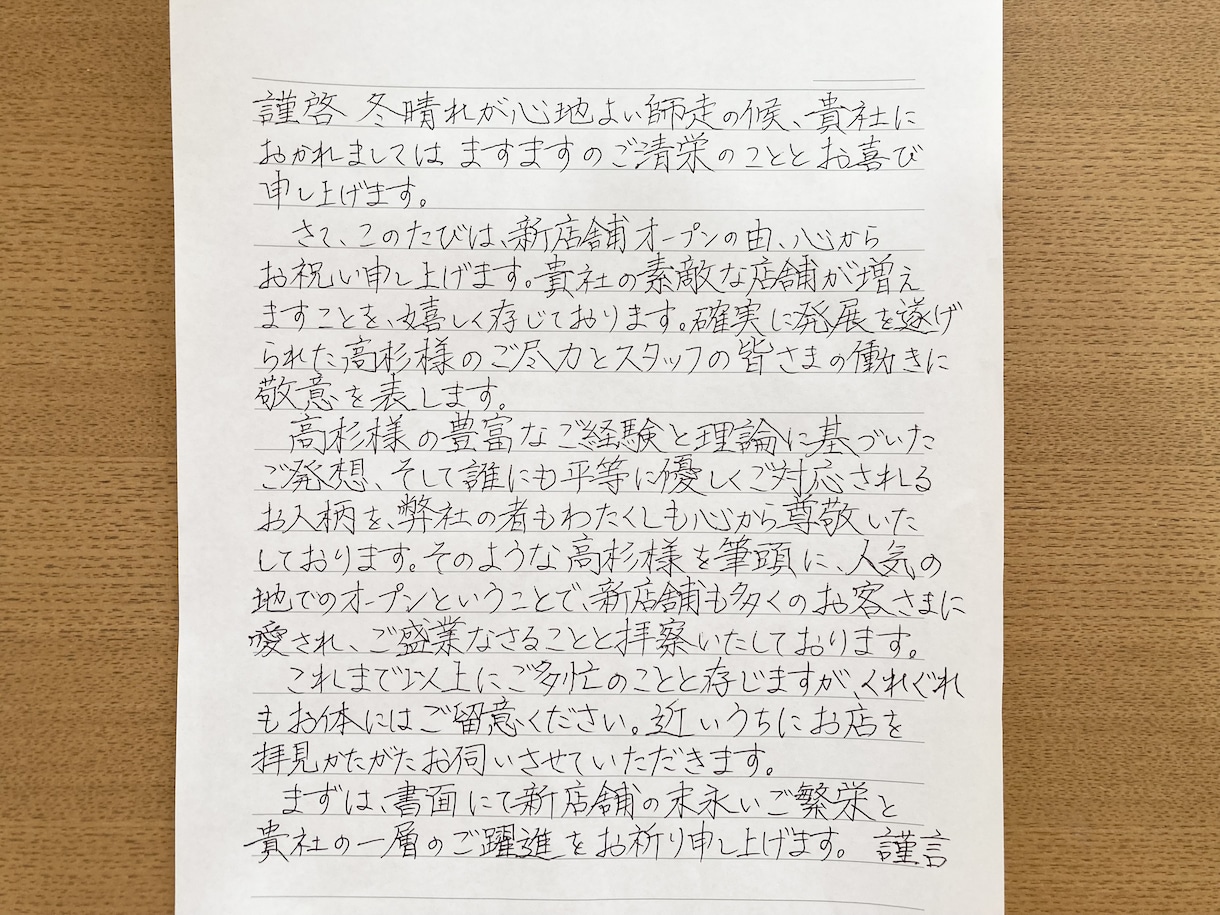 謹啓 冬晴れが心地よい師走の候、貴社に
おかれましてはますますのご清栄のこととお喜び
申し上げます。
さて、このたびは、新店舗オープンの由、心から
お祝い申し上げます。貴社の素敵な店舗が増え
ますことを、嬉しく存じております。確実に発展を遂げ
られた高杉様のご尽力とスタッフの皆さまの働きに
敬意を表します。
高杉様の豊富なご経験と理論に基づいた
ご発想、そして誰にも平等に優しくご対応される
お人柄を、弊社の者もわたくしも心から尊敬いた
しております。そのような高杉様を筆頭に、人気の
地でのオープンということで、新店舗も多くのお客さまに
愛され、ご盛業なさることと拝察いたしております。
これまで以上にご多忙のことと存じますが、くれぐれ
もお体にはご留意ください。近いうちにお店を
拝見かたがたお伺いさせていただきます。
まずは、書面にて新店舗の末永いご繁栄と
貴社の一層のご躍進をお祈り申し上げます。 謹言